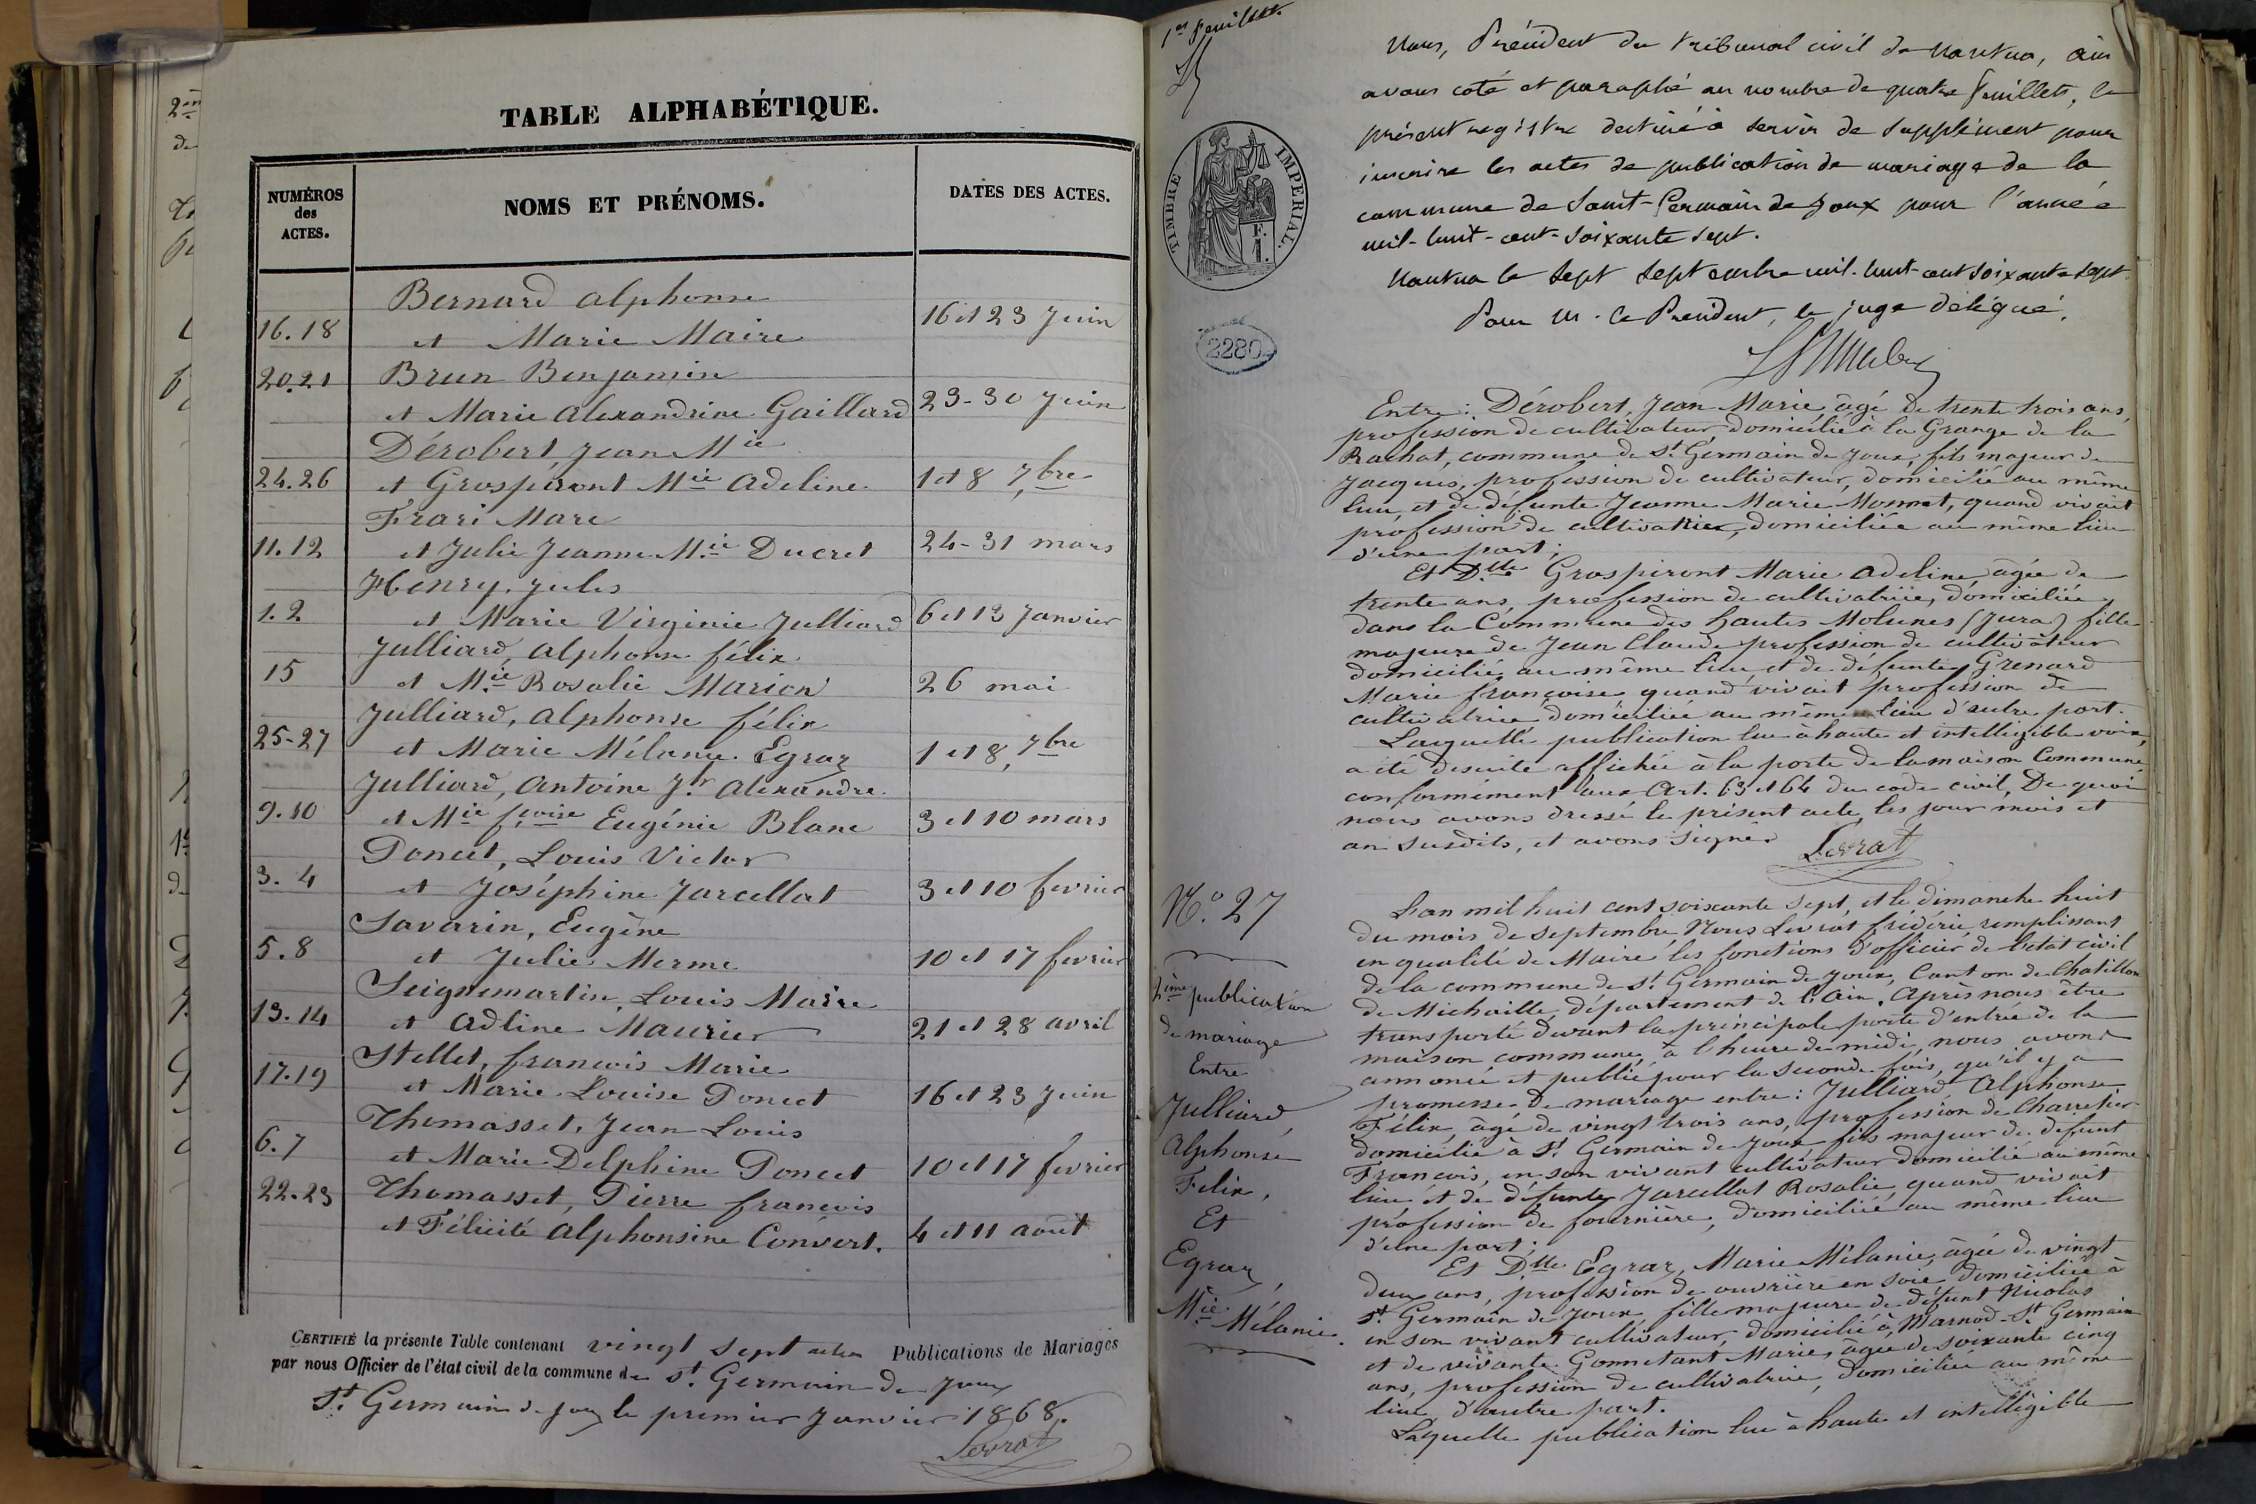 TABLE ALPHABÉTIQUE.
NUMÉROS
des
ACTES.
NOMS ET PRÉNOMS.
DATES DES ACTES.
Bernard Alphonse
16.18 et Marie Maire 16 et 23 Juin
20.21 Brun Benjamin
et Marie Alexandrine Gaillard 23-30 Juin
Dérobert, Jean Mie
24.26 et Grospiront Mie Adeline 1 et 8 7bre
Frari Marc
11.12 et Julie Jeanne Mie Ducret 24-31 mars
Henry, Jules
1.2 et Marie Virginie Julliard 6 et 13 Janvier
Julliard, Alphonse félix
15 et Mie Rosalie Marion 26 mai
Julliard, Alphonse félix
25-27 et Marie Mélanie Egraz 1 et 8, 7bre
Julliard, Antoine Jh Alexandre
9.10 et Mie fçoise Eugénie Blanc 3 et 10 mars
Poncet, Louis Victor
3.4 et Joséphine Jarcellat 3 et 10 fevrier
Savarin, Eugène
5.8 et Julie Merme 10 et 17 fevrier
Seignemartin, Louis Marie
13.14 et Adline Maurier 21 et 28 avril
Stellet, françois Marie
17.19 et Marie Louise Poncet 16 et 23 Juin
Thomasset, Jean Louis
6.7 et Marie Delphine Poncet 10 et 17 fevrier
22.23 Thomasset, Pierre françois
et Félicité Alphonsine Convert. 4 et 11 août
CERTIFIÉ la présente Table contenant vingt sept actes Publications de Mariages
par nous Officier de l'état civil de la commune de St. Germain de Joux
St. Germain de Joux le premier Janvier 1868.
Levrat
1er feuillet.
TIMBRE IMPÉRIAL.
F.
1.
2280
Nous, Président du Tribunal civil de Nantua, Ain
avons coté et paraphé au nombre de quatre feuillets, le
présent registre destiné à servir de supplément pour
inscrire les actes de publication de mariage de la
commune de Saint-Germain de Joux pour l'année
mil-huit-cent-soixante sept.
Nantua le sept septembre mil-huit-cent soixante sept
Pour M. le Président, le juge délégué,
Entre: Dérobert, Jean Marie, âgé de trente trois ans,
profession de cultivateur, domicilié à la Grange de la
Rachat, commune de St. Germain de Joux, fils majeur de
Jacques, profession de cultivateur, domicilié au même
lieu, et de défunte Jeanne Marie Monnet, quand vivait
profession de cultivatrice, domiciliée au même lieu
d'une part;
Et Dlle Grospiront Marie Adeline, âgée de
trente ans, profession de cultivatrice, domiciliée
dans la Commune des hautes Molunes (Jura) fille
majeure de Jean Claude profession de cultivateur
domicilié au même lieu, et de défunte Grenard
Marie françoise quand vivait profession de
cultivatrice domiciliée au même lieu d'autre part.
Laquelle publication lue à haute et intelligible voix,
a été desuite affichée à la porte de la maison Commune
conformément aux Art. 63 et 64 du code civil, De quoi
nous avons dressé le présent acte, les jour mois et
an susdits, et avons signé
Levrat
N.° 27
2ème publication
de mariage
Entre
Julliard,
Alphonse
Felix,
Et
Egraz,
Mie Mélanie.
L'an mil huit cent soixante sept, et le dimanche huit
du mois de septembre, Nous Levrat frédéric, remplissant
en qualité de Maire les fonctions d'officier de l'état civil
de la commune de St. Germain de Joux, Canton de Chatillon
de Michaille, département de l'Ain. Après nous être
transporté devant la principale porte d'entrée de la
maison commune, à l'heure de midi, nous avons
annoncé et publié pour la seconde fois, qu'il y a
promesse de mariage entre: Julliard Alphonse
Félix, âgé de vingt trois ans, profession de Charretier
domicilié à St. Germain de Joux, fils majeur de défunt
François, en son vivant cultivateur domicilié au même
lieu, et de défunte Jarcellat Rosalie, quand vivait
profession de fournière, domiciliée au même lieu
d'une part;
Et Dlle Egraz, Marie Mélanie, âgée de vingt
deux ans, profession de ouvrière en soie, domiciliée à
St. Germain de Joux, fille majeure de défunt Nicolas
en son vivant cultivateur, domicilié à Marnod-St Germain
et de vivante Gonnetant Marie, âgée de soixante cinq
ans, profession de cultivatrice, domiciliée au même
lieu d'autre part.
Laquelle publication lue à haute et intelligible